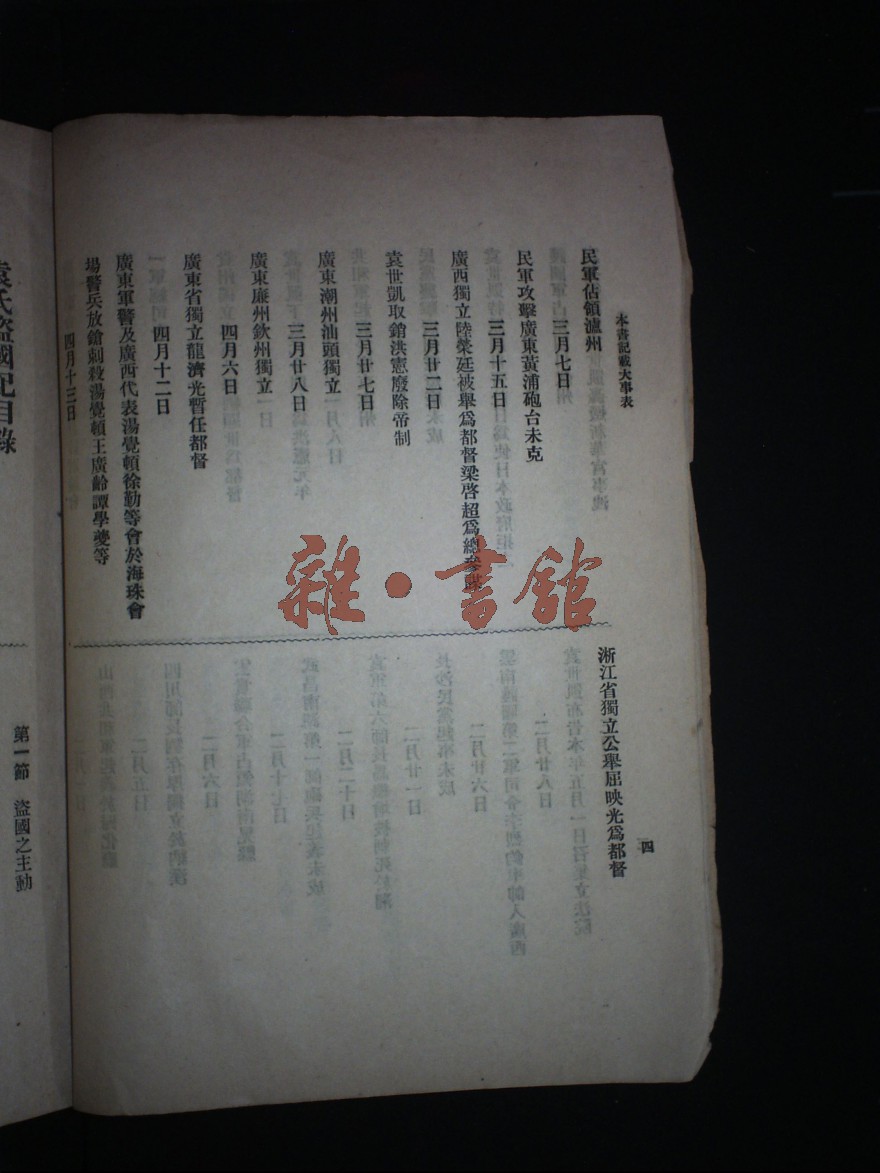 本書記載大事表
四
民軍佔領瀘州
三月七日
民軍攻擊廣東黃浦砲台未克
三月十五日
廣西獨立陸榮廷被舉爲都督梁啓超爲總參謀
三月廿二日
袁世凱取銷洪憲廢除帝制
三月廿七日
廣東潮州汕頭獨立
三月廿八日
廣東廉州欽州獨立
四月六日
廣東省獨立龍濟光暫任都督
四月十二日
廣東軍警及廣西代表湯覺頓徐勤等會於海珠會
場警兵放鎗刺殺湯覺頓王廣齡譚學夔等
四月十三日
浙江省獨立公舉屈映光爲都督
袁氏盜國記目錄
第一節 盜國之主動
雜·書館